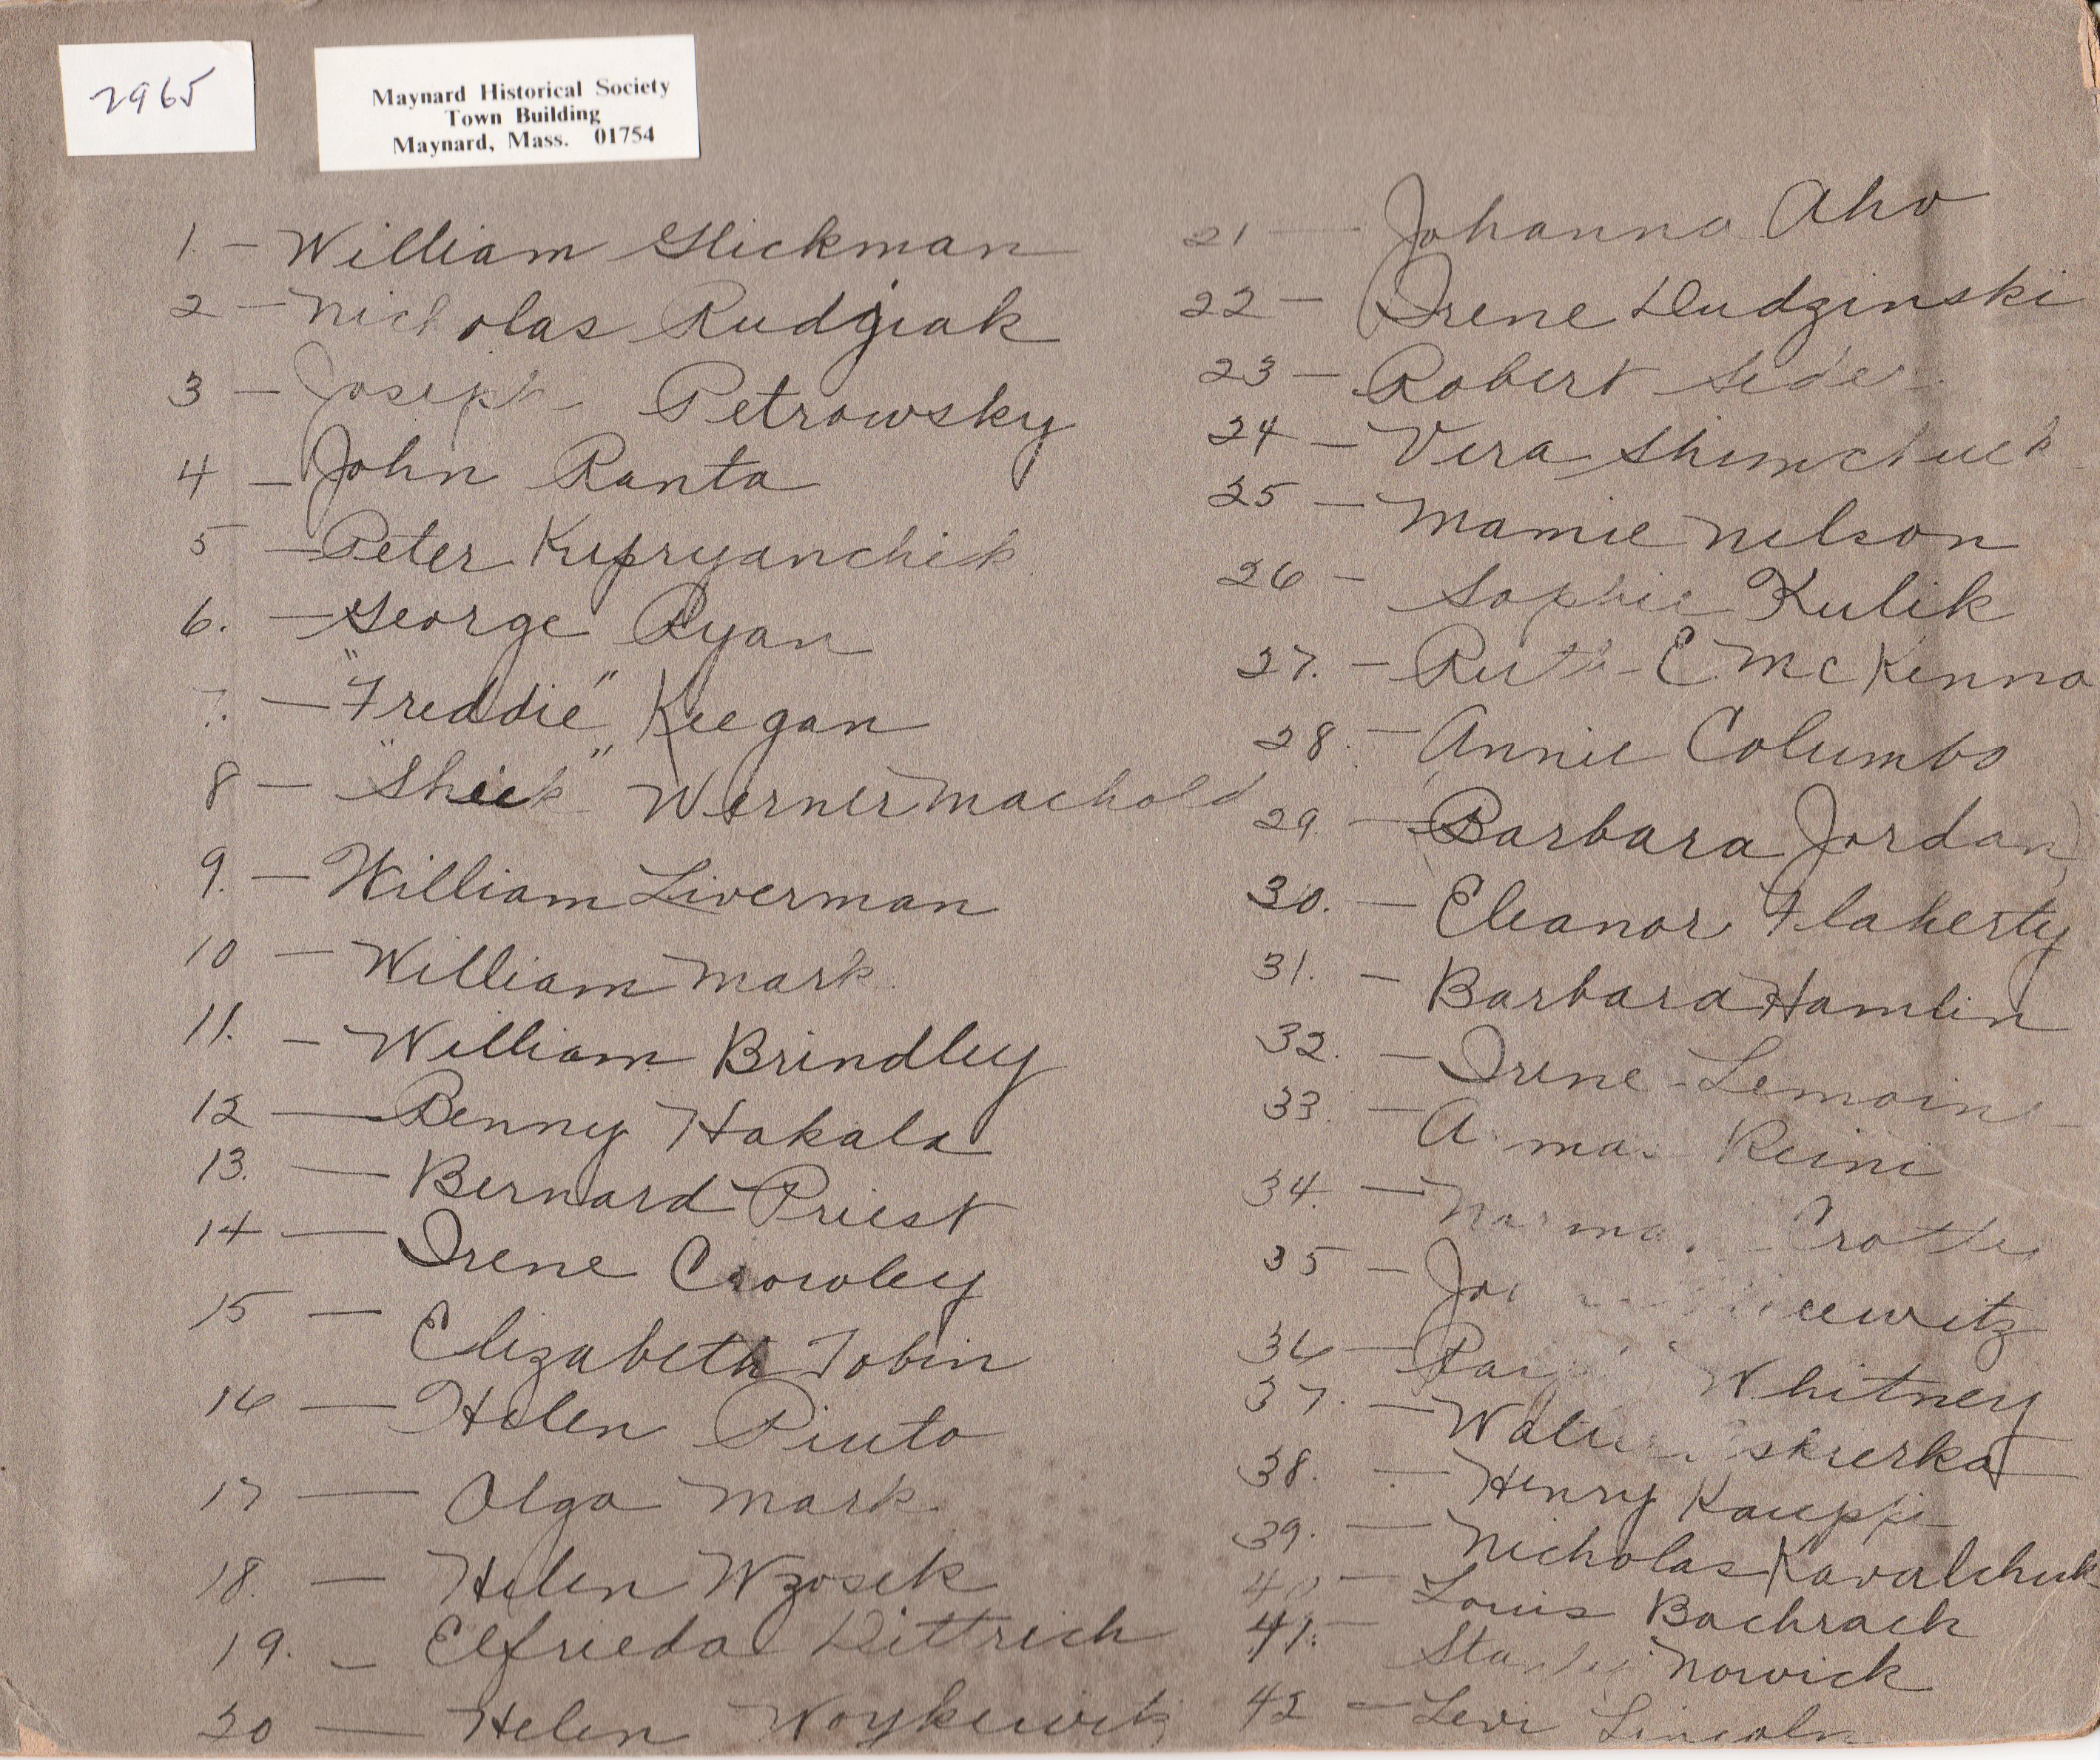 2965
Maynard Historical Society
Town Building
Maynard, Mass. 01754
1. - William Glickman
2 - Nicholas Rudziak
3 - Joseph Petrowsky
4 - John Ranta
5 - Peter Kupryanchik
6. - George Ryan
7. - "Freddie" Keegan
8 - "Sheik" Werner Machold
9. - William Liverman
10 - William Mark
11. - William Brindley
12 - Benny Hakala
13. - Bernard Priest
14 - Irene Crowley
15 - Elizabeth Tobin
16 - Helen Piuto
17 - Olga Mark
18. - Helen Wzosek
19. - Elfrieda Dittrich
20 - Helen Woykewitz
21 - Johanna Aho
22 - Irene Dudzinski
23 - Robert
24 - Vera Shimchuck
25 - Mamie Nelson
26 - Sophie Kulik
27. - Ruth E. McKenna
28. - Annie Columbo
29. - Barbara Jordan
30. - Eleanor Flaherty
31. - Barbara Hamlin
32. - Irene Lemoine
33. - Reini
34. -
35 -
36 - Whitney
37. -
38. - Henry Kauppi
39. - Nicholas Kavalchuk
40 - Louis Bachrach
41. - Stanley Nowick
42 - Levi Lincoln